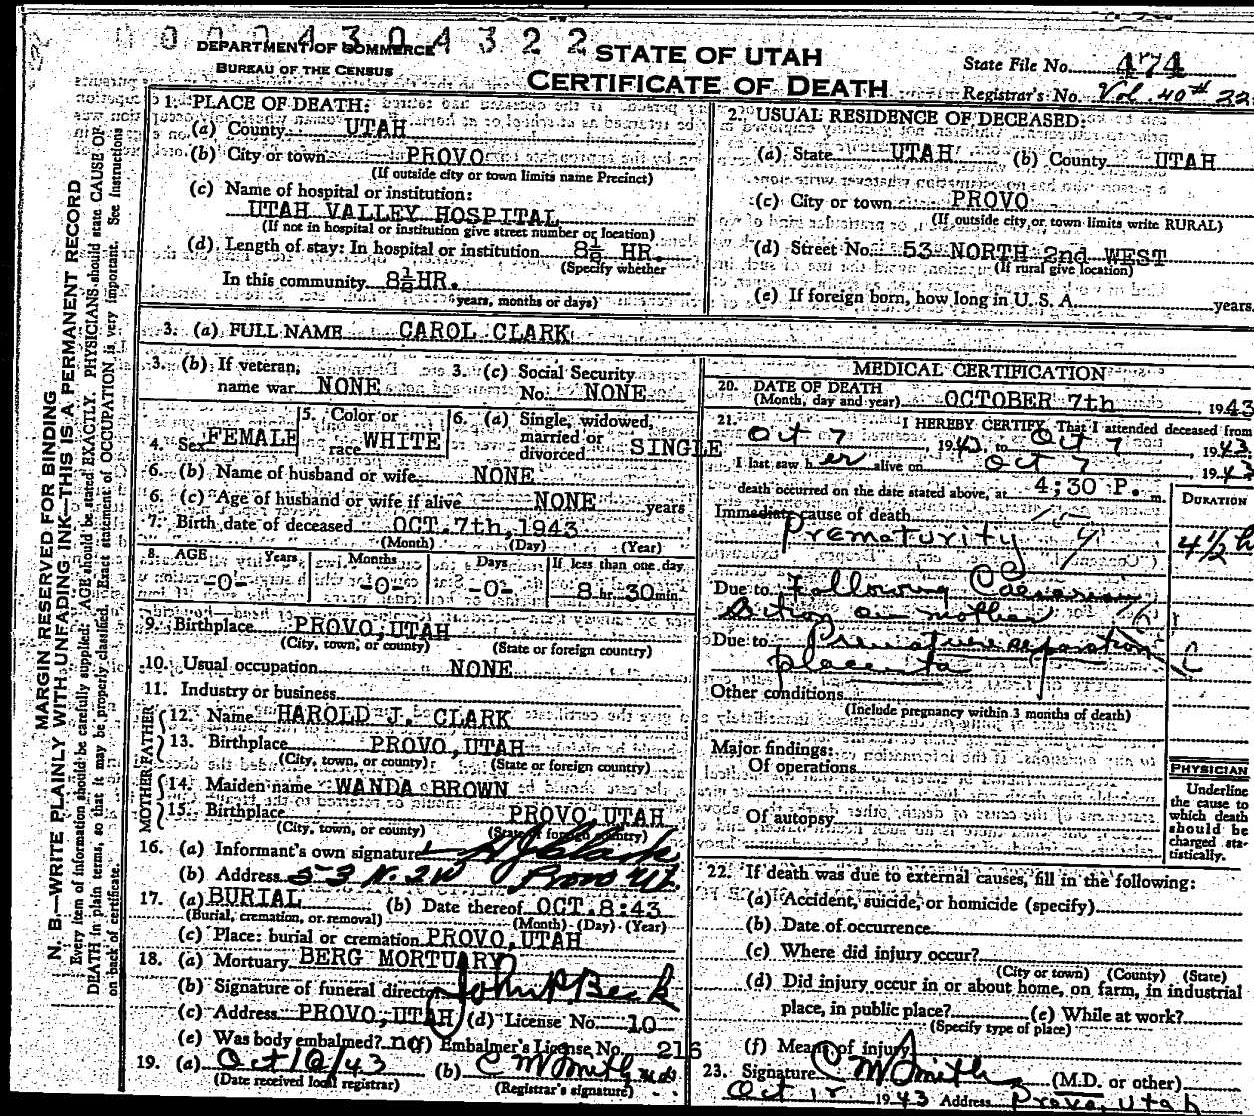 0 0 0 0 4 3 0 4 3 2 2
DEPARTMENT OF COMMERCE
BUREAU OF THE CENSUS
STATE OF UTAH
CERTIFICATE OF DEATH
State File No. 474
Registrar's No. Vol. 40 # 22
MARGIN RESERVED FOR BINDING
N. B.—WRITE PLAINLY WITH UNFADING INK—THIS IS A PERMANENT RECORD
Every item of information should be carefully supplied. AGE should be stated EXACTLY. PHYSICIANS should state CAUSE OF
DEATH in plain terms, so that it may be properly classified. Exact statement of OCCUPATION is very important. See Instructions
on back of certificate.
1. PLACE OF DEATH:
(a) County UTAH
(b) City or town PROVO
(If outside city or town limits name Precinct)
(c) Name of hospital or institution:
UTAH VALLEY HOSPITAL
(If not in hospital or institution give street number or location)
(d) Length of stay: In hospital or institution 8½ HR.
(Specify whether
In this community 8½HR.
years, months or days)
2. USUAL RESIDENCE OF DECEASED:
(a) State UTAH (b) County UTAH
(c) City or town PROVO
(If outside city or town limits write RURAL)
(d) Street No. 53 NORTH 2nd WEST
(If rural give location)
(e) If foreign born, how long in U. S. A. years
3. (a) FULL NAME CAROL CLARK
3. (b) If veteran, name war NONE
3. (c) Social Security No. NONE
4. Sex FEMALE
5. Color or race WHITE
6. (a) Single, widowed, married or divorced SINGLE
6. (b) Name of husband or wife NONE
6. (c) Age of husband or wife if alive NONE years
7. Birth date of deceased OCT. 7th, 1943
(Month) (Day) (Year)
8. AGE Years Months Days If less than one day
-0- -0- -0- 8 hr. 30 min.
9. Birthplace PROVO, UTAH
(City, town, or county) (State or foreign country)
10. Usual occupation NONE
11. Industry or business
FATHER
12. Name HAROLD J. CLARK
13. Birthplace PROVO, UTAH
(City, town, or county) (State or foreign country)
MOTHER
14. Maiden name WANDA BROWN
15. Birthplace PROVO, UTAH
(City, town, or county) (State or foreign country)
16. (a) Informant's own signature H J Clark
(b) Address 53 N. 2 W Provo Ut.
17. (a) BURIAL (b) Date thereof OCT. 8:43
(Burial, cremation, or removal) (Month) (Day) (Year)
(c) Place: burial or cremation PROVO, UTAH
18. (a) Mortuary BERG MORTUARY
(b) Signature of funeral director John P. Beck
(c) Address PROVO, UTAH (d) License No. 10
(e) Was body embalmed? no (f) Embalmer's License No. 216
19. (a) Oct 10/43 (b) C M Smith M.D.
(Date received local registrar) (Registrar's signature)
MEDICAL CERTIFICATION
20. DATE OF DEATH
(Month, day and year) OCTOBER 7th, 1943
21. I HEREBY CERTIFY, That I attended deceased from
Oct 7, 1943, to Oct 7, 1943
I last saw her alive on Oct 7 1943
death occurred on the date stated above, at 4;30 P. m.
DURATION
Immediate cause of death
Prematurity 4½ h
Due to Following Caesarian
Section on mother
Due to Premature separation
placenta
Other conditions
(Include pregnancy within 3 months of death)
Major findings:
Of operations
Of autopsy
PHYSICIAN
Underline
the cause to
which death
should be
charged sta-
tistically.
22. If death was due to external causes, fill in the following:
(a) Accident, suicide, or homicide (specify)
(b) Date of occurrence
(c) Where did injury occur?
(City or town) (County) (State)
(d) Did injury occur in or about home, on farm, in industrial
place, in public place? (e) While at work?
(Specify type of place)
(f) Means of injury
23. Signature C M Smith (M.D. or other)
Oct 1943 Address Provo, Utah